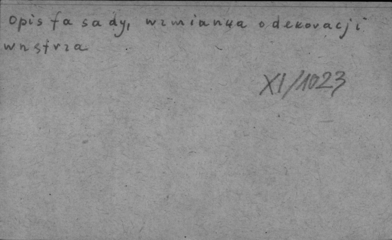 Opis fasady, wzmianka o dekoracji
wnętrza
XI/1023